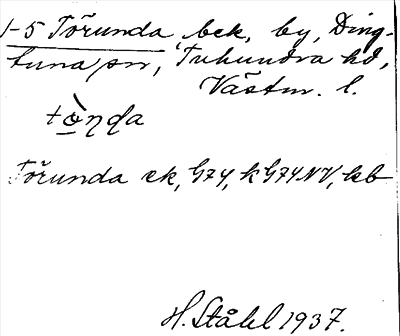 1-5 Törunda bek, by, Ding-
tuna sn, Tuhundra hd,
Västm. l.
tò̱ṇḍa
Törunda ek, G74, k G74NV, kb
H. Ståhl 1937.